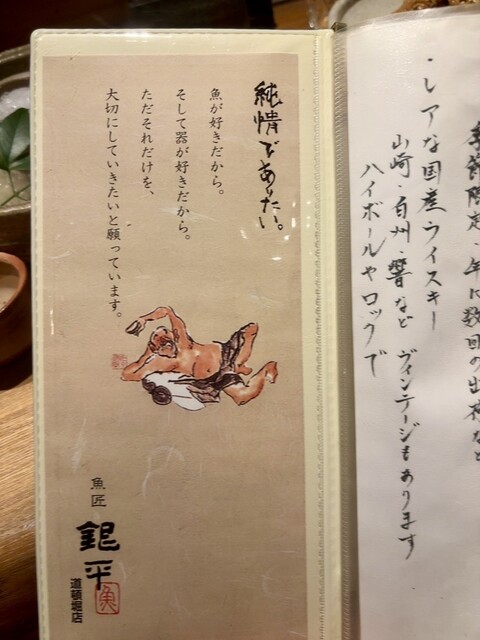 純情でありたい。
魚が好きだから。
そして器が好きだから。
ただそれだけを、
大切にしていきたいと願っています。
魚匠
銀平
道頓堀店
魚
季節限定、年に数回の出荷など
・レアな国産ウイスキー
山崎・白州・響など ヴィンテージもあります
ハイボールやロックで